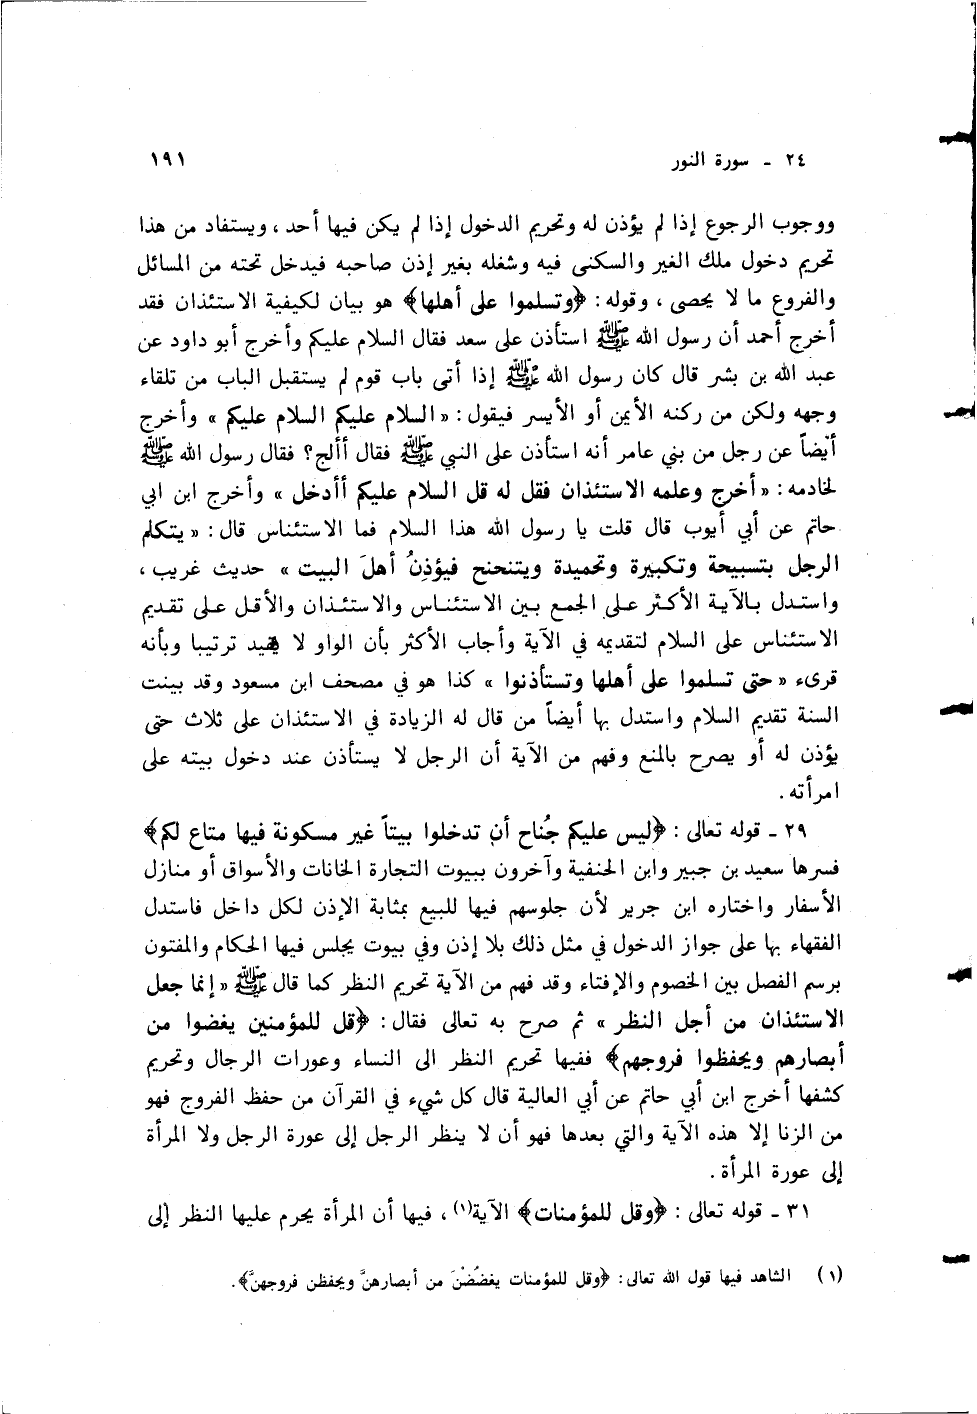 ٢٤ ـ سورة النور ١٩١
ووجوب الرجوع إذا لم يؤذن له وتحريم الدخول إذا لم يكن فيها أحد ، ويستفاد من هذا
تحريم دخول ملك الغير والسكنى فيه وشغله بغير إذن صاحبه فيدخل تحته من المسائل
والفروع ما لا يحصى ، وقوله : ﴿وتسلموا على أهلها﴾ هو بيان لكيفية الاستئذان فقد
أخرج أحمد أن رسول الله ﷺ استأذن على سعد فقال السلام عليكم وأخرج أبو داود عن
عبد الله بن بشر قال كان رسول الله ﷺ إذا أتى باب قوم لم يستقبل الباب من تلقاء
وجهه ولكن من ركنه الأيمن أو الأيسر فيقول : « السلام عليكم السلام عليكم » وأخرج
أيضاً عن رجل من بني عامر أنه استأذن على النبي ﷺ فقال أألج؟ فقال رسول الله ﷺ
لخادمه : « أخرج وعلمه الاستئذان فقل له قل السلام عليكم أأدخل » وأخرج ابن ابي
حاتم عن أبي أيوب قال قلت يا رسول الله هذا السلام فما الاستئناس قال : « يتكلم
الرجل بتسبيحة وتكبيرة وتحميدة ويتنحنح فيؤذِنُ أهلَ البيت » حديث غريب ،
واستدل بالآية الأكثر على الجمع بين الاستئناس والاستئذان والأقل على تقديم
الاستئناس على السلام لتقديمه في الآية وأجاب الأكثر بأن الواو لا يفيد ترتيبا وبأنه
قرىء « حتى تسلموا على أهلها وتستأذنوا » كذا هو في مصحف ابن مسعود وقد بينت
السنة تقديم السلام واستدل بها أيضاً من قال له الزيادة في الاستئذان على ثلاث حتى
يؤذن له أو يصرح بالمنع وفهم من الآية أن الرجل لا يستأذن عند دخول بيته على
امرأته .
٢٩ ـ قوله تعالى : ﴿ليس عليكم جُناح أن تدخلوا بيتاً غير مسكونة فيها متاع لكم﴾
فسرها سعيد بن جبير وابن الحنفية وآخرون ببيوت التجارة الخانات والأسواق أو منازل
الأسفار واختاره ابن جرير لأن جلوسهم فيها للبيع بمثابة الإذن لكل داخل فاستدل
الفقهاء بها على جواز الدخول في مثل ذلك بلا إذن وفي بيوت يجلس فيها الحكام والمفتون
برسم الفصل بين الخصوم والإفتاء وقد فهم من الآية تحريم النظر كما قال ﷺ « إنما جعل
الاستئذان من أجل النظر » ثم صرح به تعالى فقال : ﴿قل للمؤمنين يغضوا من
أبصارهم ويحفظوا فروجهم﴾ ففيها تحريم النظر الى النساء وعورات الرجال وتحريم
كشفها أخرج ابن أبي حاتم عن أبي العالية قال كل شيء في القرآن من حفظ الفروج فهو
من الزنا إلا هذه الآية والتي بعدها فهو أن لا ينظر الرجل إلى عورة الرجل ولا المرأة
إلى عورة المرأة .
٣١ ـ قوله تعالى : ﴿وقل للمؤمنات﴾ الآية(١) ، فيها أن المرأة يحرم عليها النظر إلى
(١) الشاهد فيها قول الله تعالى : ﴿وقل للمؤمنات يغضُضْنَ من أبصارهنَّ ويحفظن فروجهنَّ﴾ .